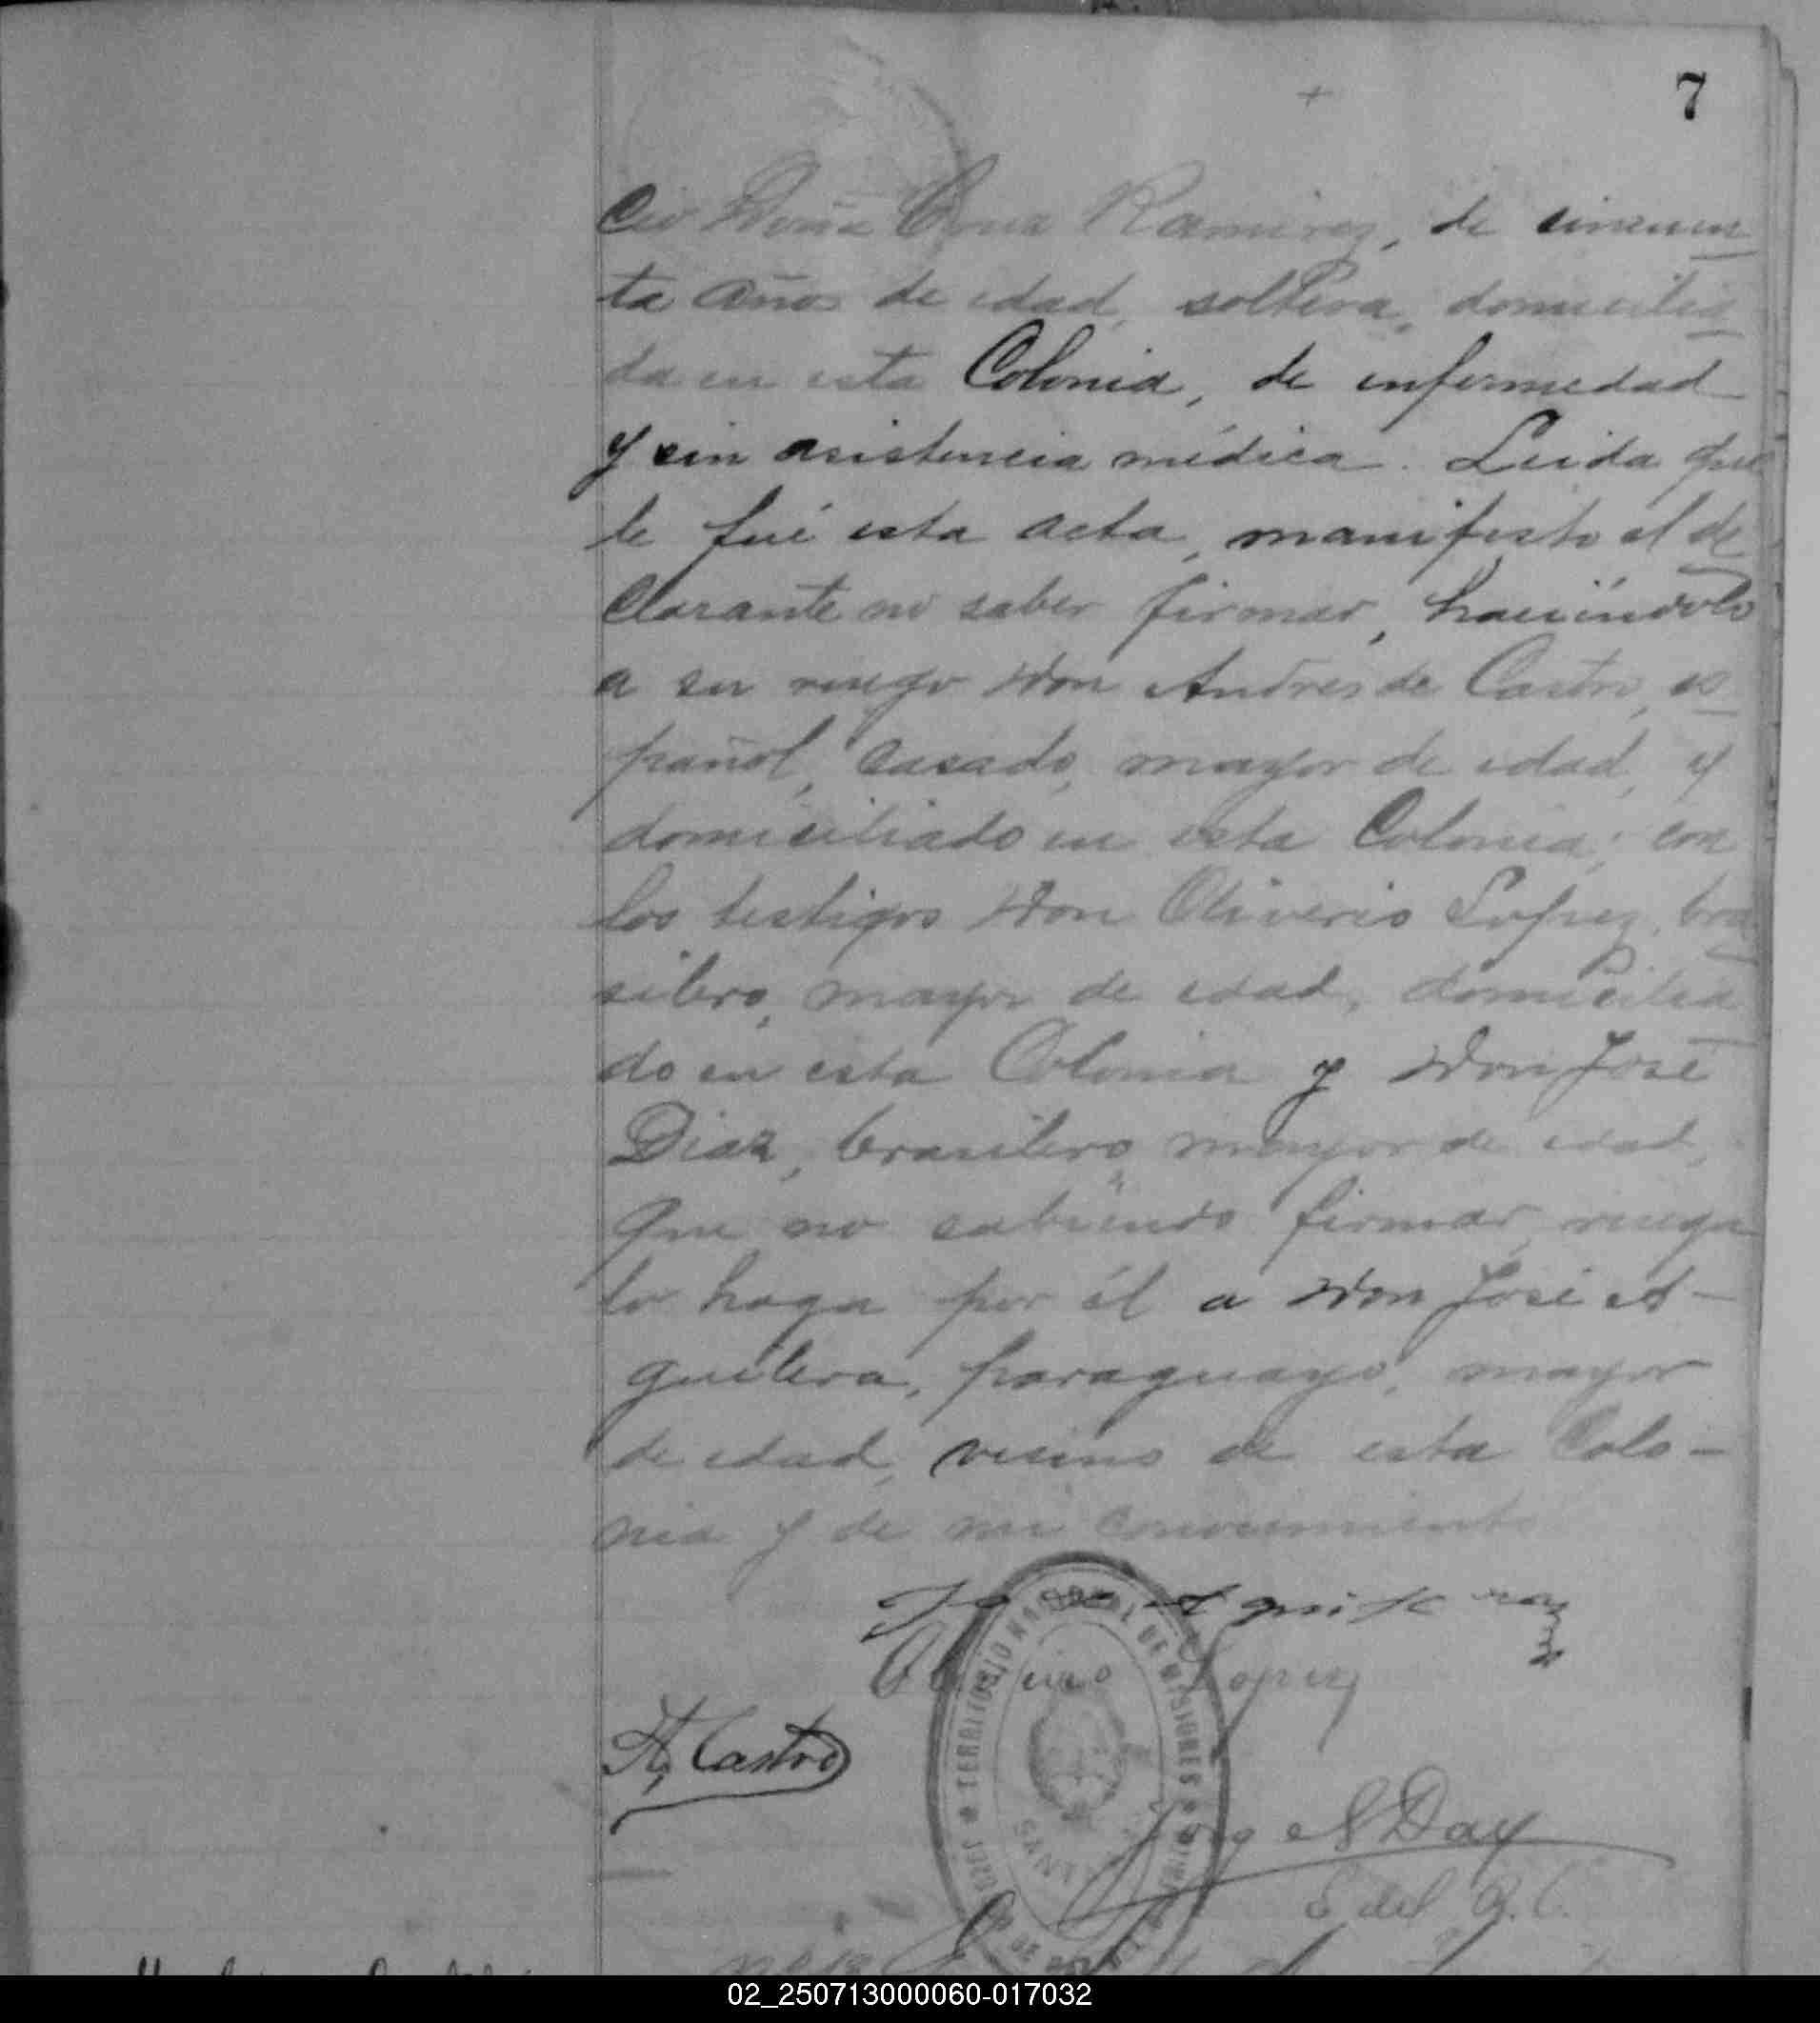 7
cio Doña Cruz Ramirez, de cincuen
ta años de edad, soltera, domicilia
da en esta Colonia, de enfermedad
y sin asistencia médica. Leida que
le fué esta acta, manifesto el de
clarante no saber firmar, haciéndolo
a su ruego Don Andrés de Castro, es
pañol, casado, mayor de edad, y
domiciliado en esta Colonia; con
los testigos Don Oliverio Lopez, bra
silero, mayor de edad, domicilia
do en esta Colonia y Don José
Diaz, brasilero, mayor de edad,
que no sabiendo firmar, ruega
lo haga por él a Don José A-
guilera, paraguayo, mayor
de edad, vecino de esta Colo-
nia y de mi conocimiento
Aguilera
Lopez
A. Castro
TERRITORIO NACIONAL DE MISIONES
Day
E del R. C.
02_250713000060-017032